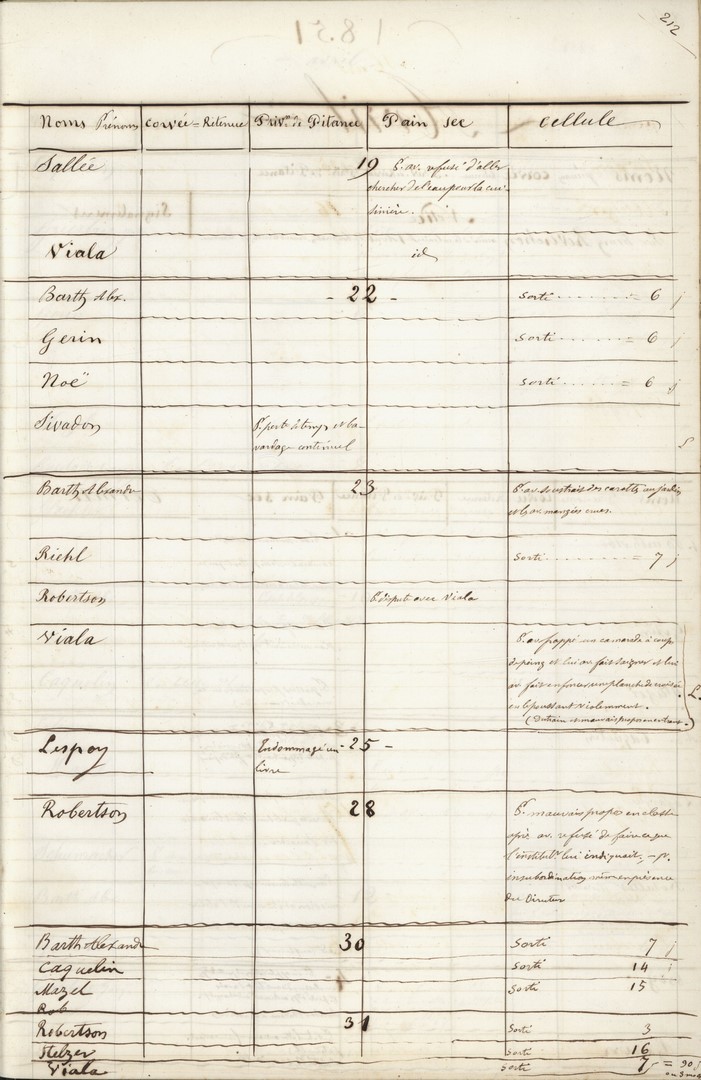 212
Noms Prénoms corvée = Retenue Priv.on de Pitance Pain sec cellule
Sallée 19 Pr. av. refusé d'aller
chercher de l'eau pour la cui-
sinière.
Viala id
Barth Alex. - 22 - sorti = 6 j
Gerin sorti = 6 j
Noë sorti = 6 j
Sivadon Pr. perte de temps et ba-
vardage continuel
Barth Alexandre 23 Pr. av. soustrait des carottes au jardin
et les av. mangées crues.
Riehl sorti = 7 j
Robertson Pr. dispute avec Viala
Viala Pr. av. frappé un camarade à coups
de poing et lui av. fait saigner et lui
av. fait enfoncer une planche de
en le poussant violemment.
L.
Lespoy Endommagé un - 25 -
livre
Robertson 28 Pr. mauvais propos en classe
après av. refusé de faire ce que
l'institutr. lui indiquait, - pr.
insubordination même en présence
du Directeur
Barth Alexandre 30 Sorti 7 j
Caquelin Sorti 14 j
Mazel Sorti 15
Rob
Robertson 31 Sorti 3
Stelzer Sorti 16
Viala sorti 7 j = 90 j
ou 3 mois